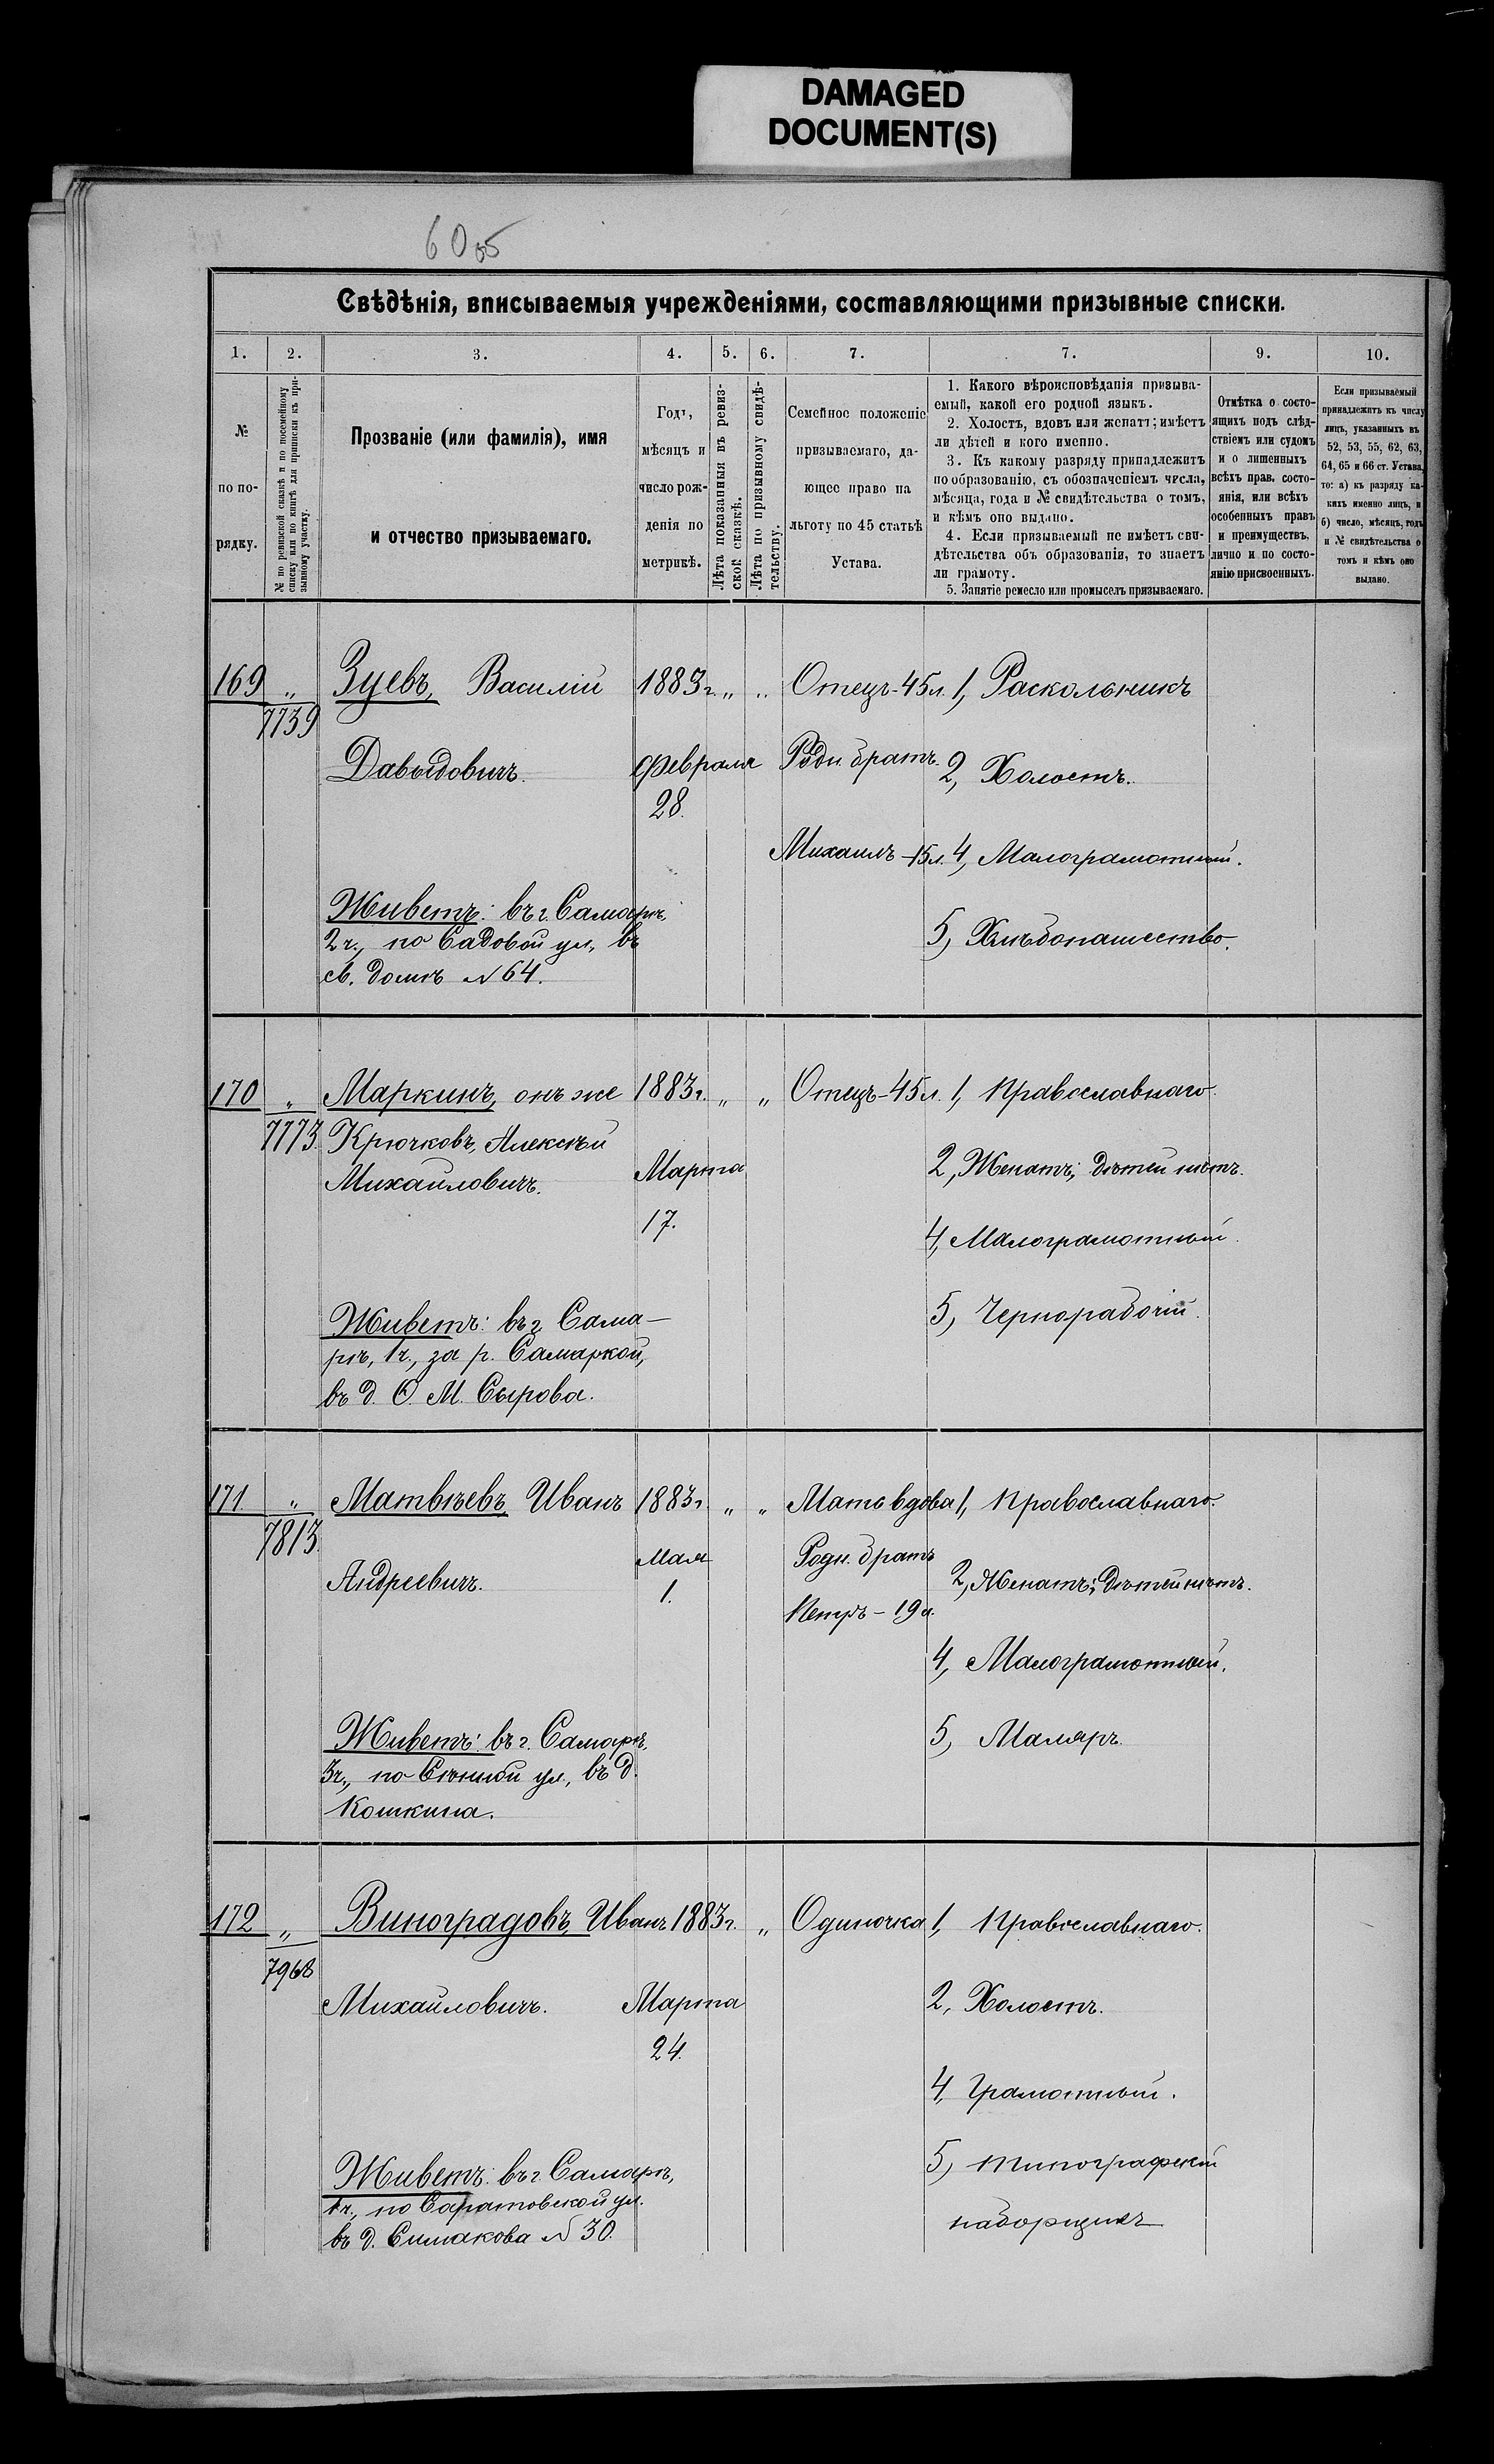 DAMAGED
DOCUMENT(S)
Свѣдѣнія, вписываемыя учрежденіями, составляющими призывные списки.
1. 2. 3. 4. 5. 6. 7. 7. 9. 10.
№
по по-
рядку.
№ по ревизской сказкѣ и по посемейному
списку или по книгѣ для приписки къ при-
зывному участку.
Прозваніе (или фамилія), имя
и отчество призываемаго.
Годъ,
мѣсяцъ и
число рож-
денія по
метрикѣ.
Лѣта показанныя въ ревиз-
ской сказкѣ.
Лѣта по призывному свидѣ-
тельству.
Семейное положеніе
призываемаго, да-
ющее право на
льготу по 45 статьѣ
Устава.
1. Какого вѣроисповѣданія призыва-
емый, какой его родной языкъ.
2. Холостъ, вдовъ или женатъ; имѣетъ
ли дѣтей и кого именно.
3. Къ какому разряду принадлежитъ
по образованію, съ обозначеніемъ числа,
мѣсяца, года и № свидѣтельства о томъ,
и кѣмъ оно выдано.
4. Если призываемый не имѣетъ сви-
дѣтельства объ образованіи, то знаетъ
ли грамоту.
5. Занятіе ремесло или промыселъ призываемаго.
Отмѣтка о состо-
ящихъ подъ слѣд-
ствіемъ или судомъ
и о лишенныхъ
всѣхъ правъ состо-
янія, или всѣхъ
особенныхъ правъ
и преимуществъ,
лично и по состо-
янію присвоенныхъ.
Если призываемый
принадлежитъ къ числу
лицъ, указанныхъ въ
52, 53, 55, 62, 63,
64, 65 и 66 ст. Устава,
то: а) къ разряду ка-
кихъ именно лицъ, и
б) число, мѣсяцъ, годъ
и № свидѣтельства о
томъ и кѣмъ оно
выдано.
169 „ Зуевъ, Василій 1883г. „ „ Отецъ-45л. 1, Раскольникъ
7739
Давыдовичъ. Февраля Родн. братъ. 2, Холостъ.
28.
Михаилъ-15л. 4, Малограмотный.
Живетъ: въ г. Самарѣ,
2ч., по Садовой ул., въ 5, Хлѣбопашество.
св. домѣ № 64.
170 „ Маркинъ, онъ же 1883г. „ „ Отецъ-45л. 1, Православнаго.
7773. Крючковъ, Алексѣй
Михайловичъ. Марта 2, Женатъ; дѣтей нѣтъ.
17.
4, Малограмотный.
Живетъ: въ г. Сама- 5, Чернорабочій.
рѣ, 1ч., за р. Самаркой,
въ д. О. М. Сырова.
171. „ Матвѣевъ, Иванъ 1883г. „ „ Мать вдова 1, Православнаго.
7813. Мая Родн. братъ
Андреевичъ. 1. 2, Женатъ; дѣтей нѣтъ.
Петръ - 19л.
4, Малограмотный.
Живетъ: въ г. Самарѣ, 5, Маляръ.
3ч., по Сѣнной ул., въ д.
Кошкина.
172 „ Виноградовъ, Иванъ 1883г. „ Одиночка 1, Православнаго.
7968
Михайловичъ. Марта 2, Холостъ.
24.
4, Грамотный.
Живетъ: въ г. Самарѣ, 5, типографскій
1ч., по Саратовской ул. наборщикъ
въ д. Симакова № 30.